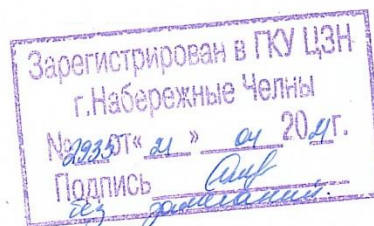 Зарегистрирован в ГКУ ЦЗН
г.Набережные Челны
№2935от« 21 » 04 2021г.
Подпись
без замечаний.